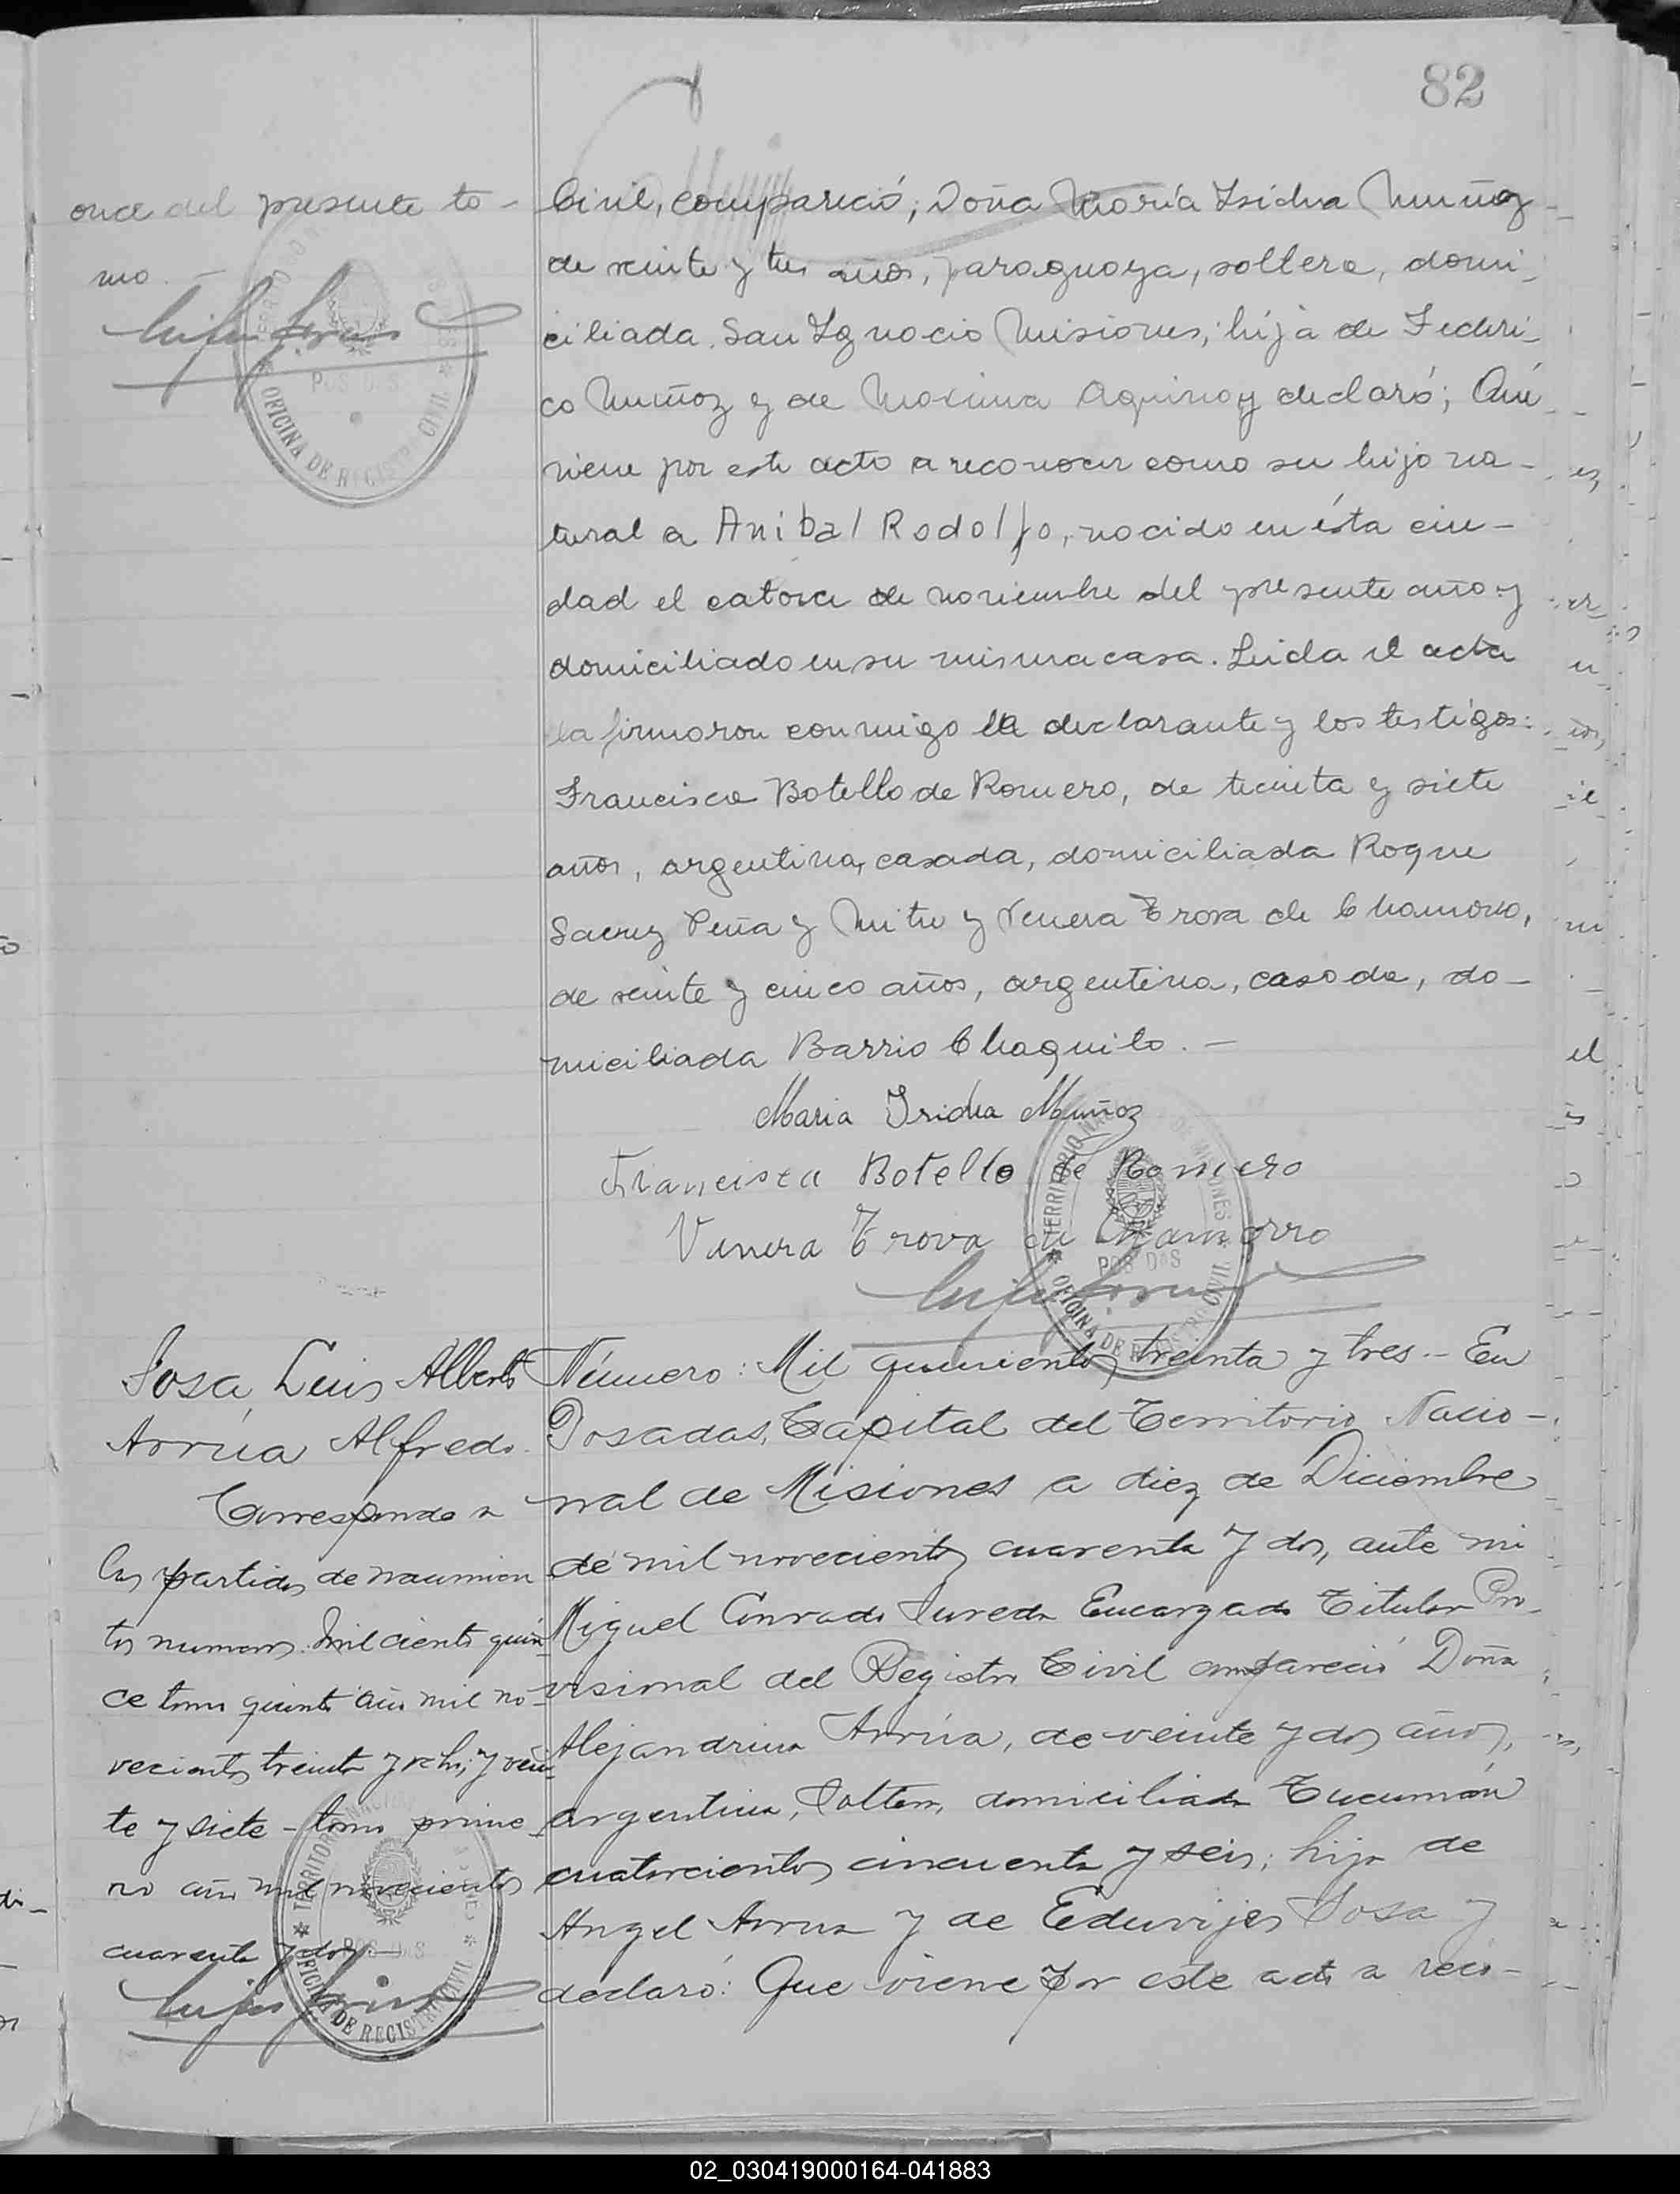 82
once del presente to-
mo.-
Civil, compareció; Doña María Isidra Muñoz
de veinte y tres años, paraguaya, soltera, domi-
ciliada San Ignacio Misiones; hija de Federi-
co Muñoz y de Maxima Aquino y declaró; Que
viene por este acto a reconocer como su hijo na-
tural a Anibal Rodolfo, nacido en ésta ciu-
dad el catorce de noviembre del presente año y
domiciliado en su misma casa. Leida el acta
la firmaron conmigo la declarante y los testigos:
Francisca Botello de Romero, de treinta y siete
años, argentina, casada, domiciliada Roque
Saenz Peña y Mitre y Venera Trova de Chamorro,
de veinte y cinco años, argentina, casada, do-
miciliada Barrio Chaquito.-
Maria Isidra Muñoz
Francisca Botello de Romero
Venera Trova de Chamorro
TERRITORIO NACIONAL DE MISIONES
POSADAS
OFICINA DE REGISTRO CIVIL
Sosa, Luis Alberto
Arrúa Alfredo.
Corresponde a
las partidas de nacimien
tos numeros. Mil ciento quin-
ce tomo quinto año mil no-
vecientos treinta y ocho; y vein-
te y siete - tomo prime-
ro año mil novecientos
cuarenta y dos.-
Número: Mil quinientos treinta y tres.- En
Posadas, Capital del Territorio Nacio-
nal de Misiones a diez de Diciembre
de mil novecientos cuarenta y dos, ante mi
Miguel Conrado Sureda Encargado Titular Pro-
visional del Registro Civil compareció Doña
Alejandrina Arrúa, de veinte y dos años,
argentina, soltera, domiciliada Tucumán
cuatrocientos cincuenta y seis; hija de
Angel Arrua y de Eduvijes Sosa y
declaró: Que viene por este acto a reco-
02_030419000164-041883